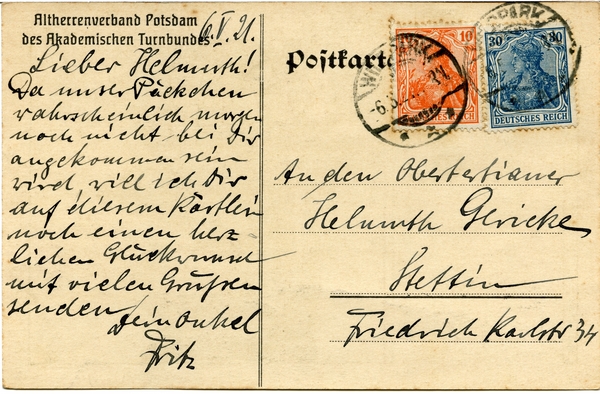 Altherrenverband Potsdam
des Akademischen Turnbundes.
6.V.21.
Lieber Helmuth!
Da unser Päckchen
wahrscheinlich morgen
noch nicht bei Dir
angekommen sein
wird, will ich Dir
auf diesem Kärtlein
noch einen herz
lichen Glückwunsch
mit vielen Grüßen
senden
Dein Onkel
Fritz
Postkarte
10
30 30
DEUTSCHES REICH
DEUTSCHES REICH
An den Obertertianer
Helmuth Gericke
Stettin
Friedrich Karlstr 34